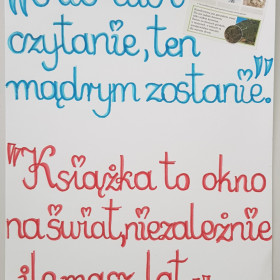 czytanie, ten
mądrym zostanie."
"Książka to okno
na świat, niezależnie
ile masz lat."